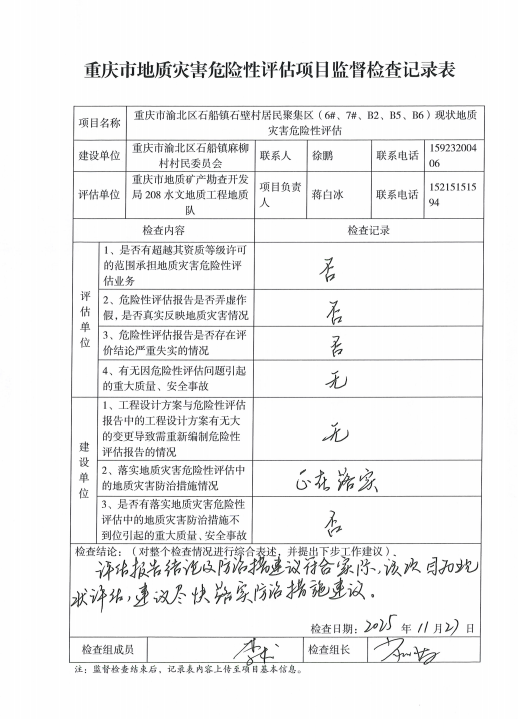 重庆市地质灾害危险性评估项目监督检查记录表
项目名称
重庆市渝北区石船镇石壁村居民聚集区（6#、7#、B2、B5、B6）现状地质
灾害危险性评估
建设单位
重庆市渝北区石船镇麻柳
村村民委员会
联系人
徐鹏
联系电话
159232004
06
评估单位
重庆市地质矿产勘查开发
局 208 水文地质工程地质
队
项目负责
人
蒋白冰
联系电话
152151515
94
检查内容
检查记录
评估单位
1、是否有超越其资质等级许可
的范围承担地质灾害危险性评
估业务
否
2、危险性评估报告是否弄虚作
假，是否真实反映地质灾害情况
否
3、危险性评估报告是否存在评
价结论严重失实的情况
否
4、有无因危险性评估问题引起
的重大质量、安全事故
无
建设单位
1、工程设计方案与危险性评估
报告中的工程设计方案有无大
的变更导致需重新编制危险性
评估报告的情况
无
2、落实地质灾害危险性评估中
的地质灾害防治措施情况
正在落实
3、是否有落实地质灾害危险性
评估中的地质灾害防治措施不
到位引起的重大质量、安全事故
否
检查结论：（对整个检查情况进行综合表述，并提出下步工作建议）。
评估报告结论及防治措施建议符合实际，该项目为现
状评估，建议尽快落实防治措施建议。
检查日期：2025 年 11 月 27 日
检查组成员
检查组长
注：监督检查结束后，记录表内容上传至项目基本信息。